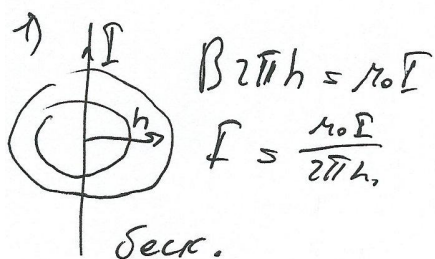 1) I
h
B2πh = μ₀I
I = μ₀I / 2πh,
беск.